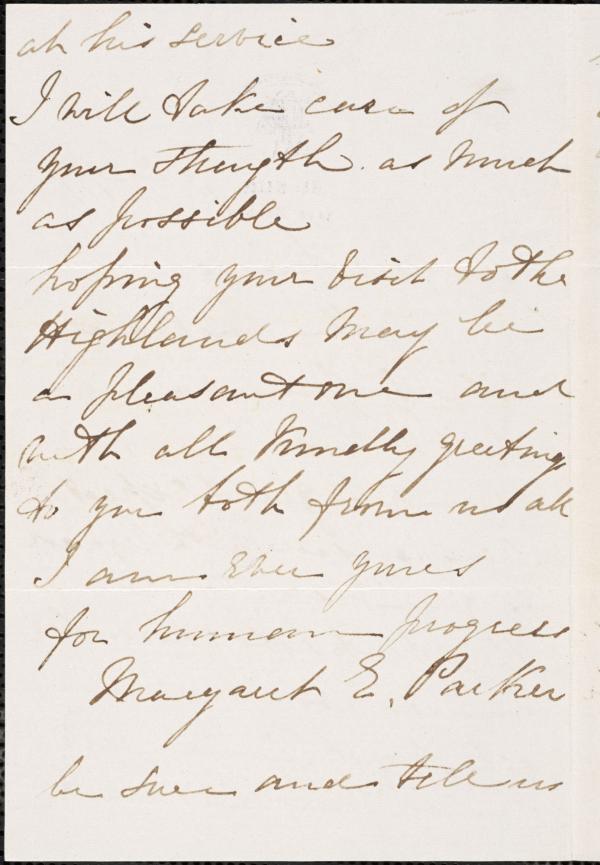 at his service
I will take care of
your strength as much
as possible
hoping your visit to the
Highlands may be
a pleasant one and
with all kindly greeting
to you both from us all
I am Ever yours
for human progress
Margaret E. Parker
be sure and tell us